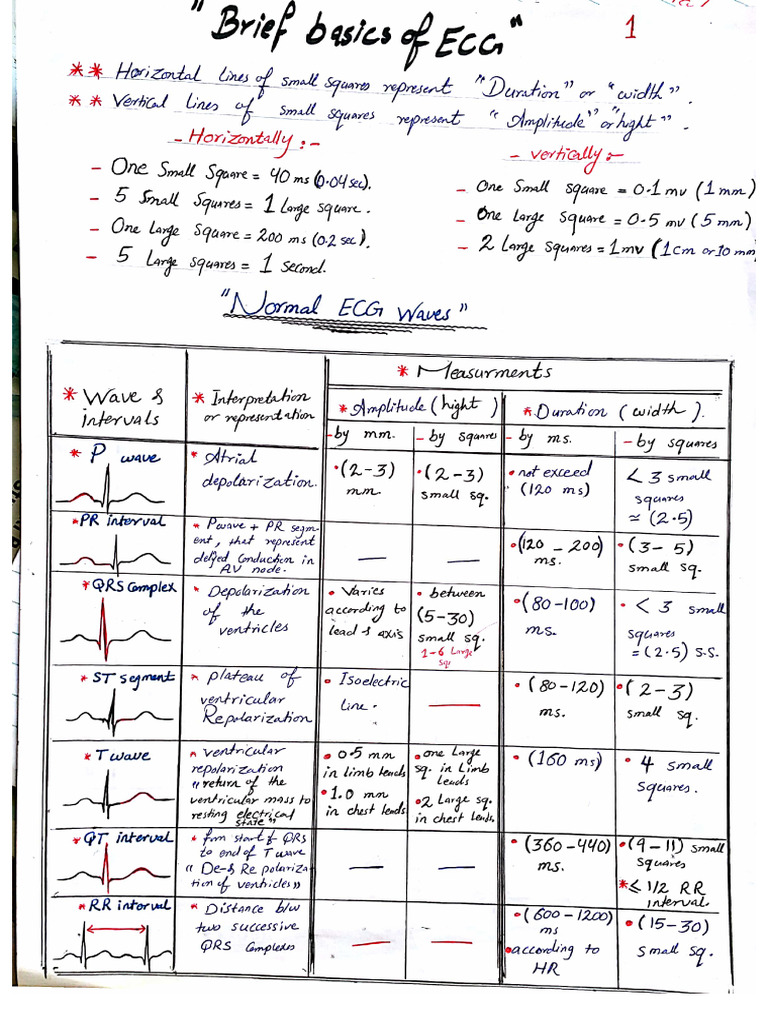 "Brief basics of ECG"
1
** Horizontal lines of small squares represent "Duration" or "width".
** Vertical lines of small squares represent "Amplitude" or "hight".
- Horizontally:-
- One Small Square = 40 ms (0.04 sec).
- 5 Small Squares = 1 Large square.
- One Large Square = 200 ms (0.2 sec).
- 5 Large squares = 1 Second.
- vertically:-
- One Small square = 0.1 mv (1 mm)
- One Large square = 0.5 mv (5 mm)
- 2 Large squares = 1 mv (1cm or 10 mm
"Normal ECG Waves"
* Wave &
intervals
* Interpretation
or representation
* Measurments
* Amplitude (hight)
* Duration (width).
- by mm.
- by squares
- by ms.
- by squares
* P wave
* Atrial
depolarization.
• (2-3)
mm.
• (2-3)
small sq.
• not exceed
(120 ms)
< 3 small
squares
≃ (2.5)
* PR interval
* P wave + PR segm-
ent, that represent
conduction in
AV node.
—
—
• (120 - 200)
ms.
• (3-5)
small sq.
* QRS Complex
* Depolarization
of the
ventricles
• Varies
according to
lead & axis
• between
(5-30)
small sq.
1-6 Large
sq.
• (80-100)
ms.
• < 3 small
squares
= (2.5) s.s.
* ST segment
* plateau of
ventricular
Repolarization
• Isoelectric
Line.
—
• (80-120)
ms.
• (2-3)
small sq.
* T wave
* ventricular
repolarization
"return of the
ventricular mass to
resting electrical
state"
• 0.5 mm
in limb leads
• 1.0 mm
in chest leads
• one Large
sq. in Limb
Leads
• 2 Large sq.
in chest leads.
• (160 ms)
• 4 small
squares.
* QT interval
* from start of QRS
to end of T wave
"De-& Re polariza-
tion of ventricles"
—
—
• (360-440)
ms.
• (9-11) small
squares
* < 1/2 RR
interval.
* RR interval
* Distance b/w
two successive
QRS Complexes
—
—
• (600-1200)
ms
• according to
HR
• (15-30)
small sq.